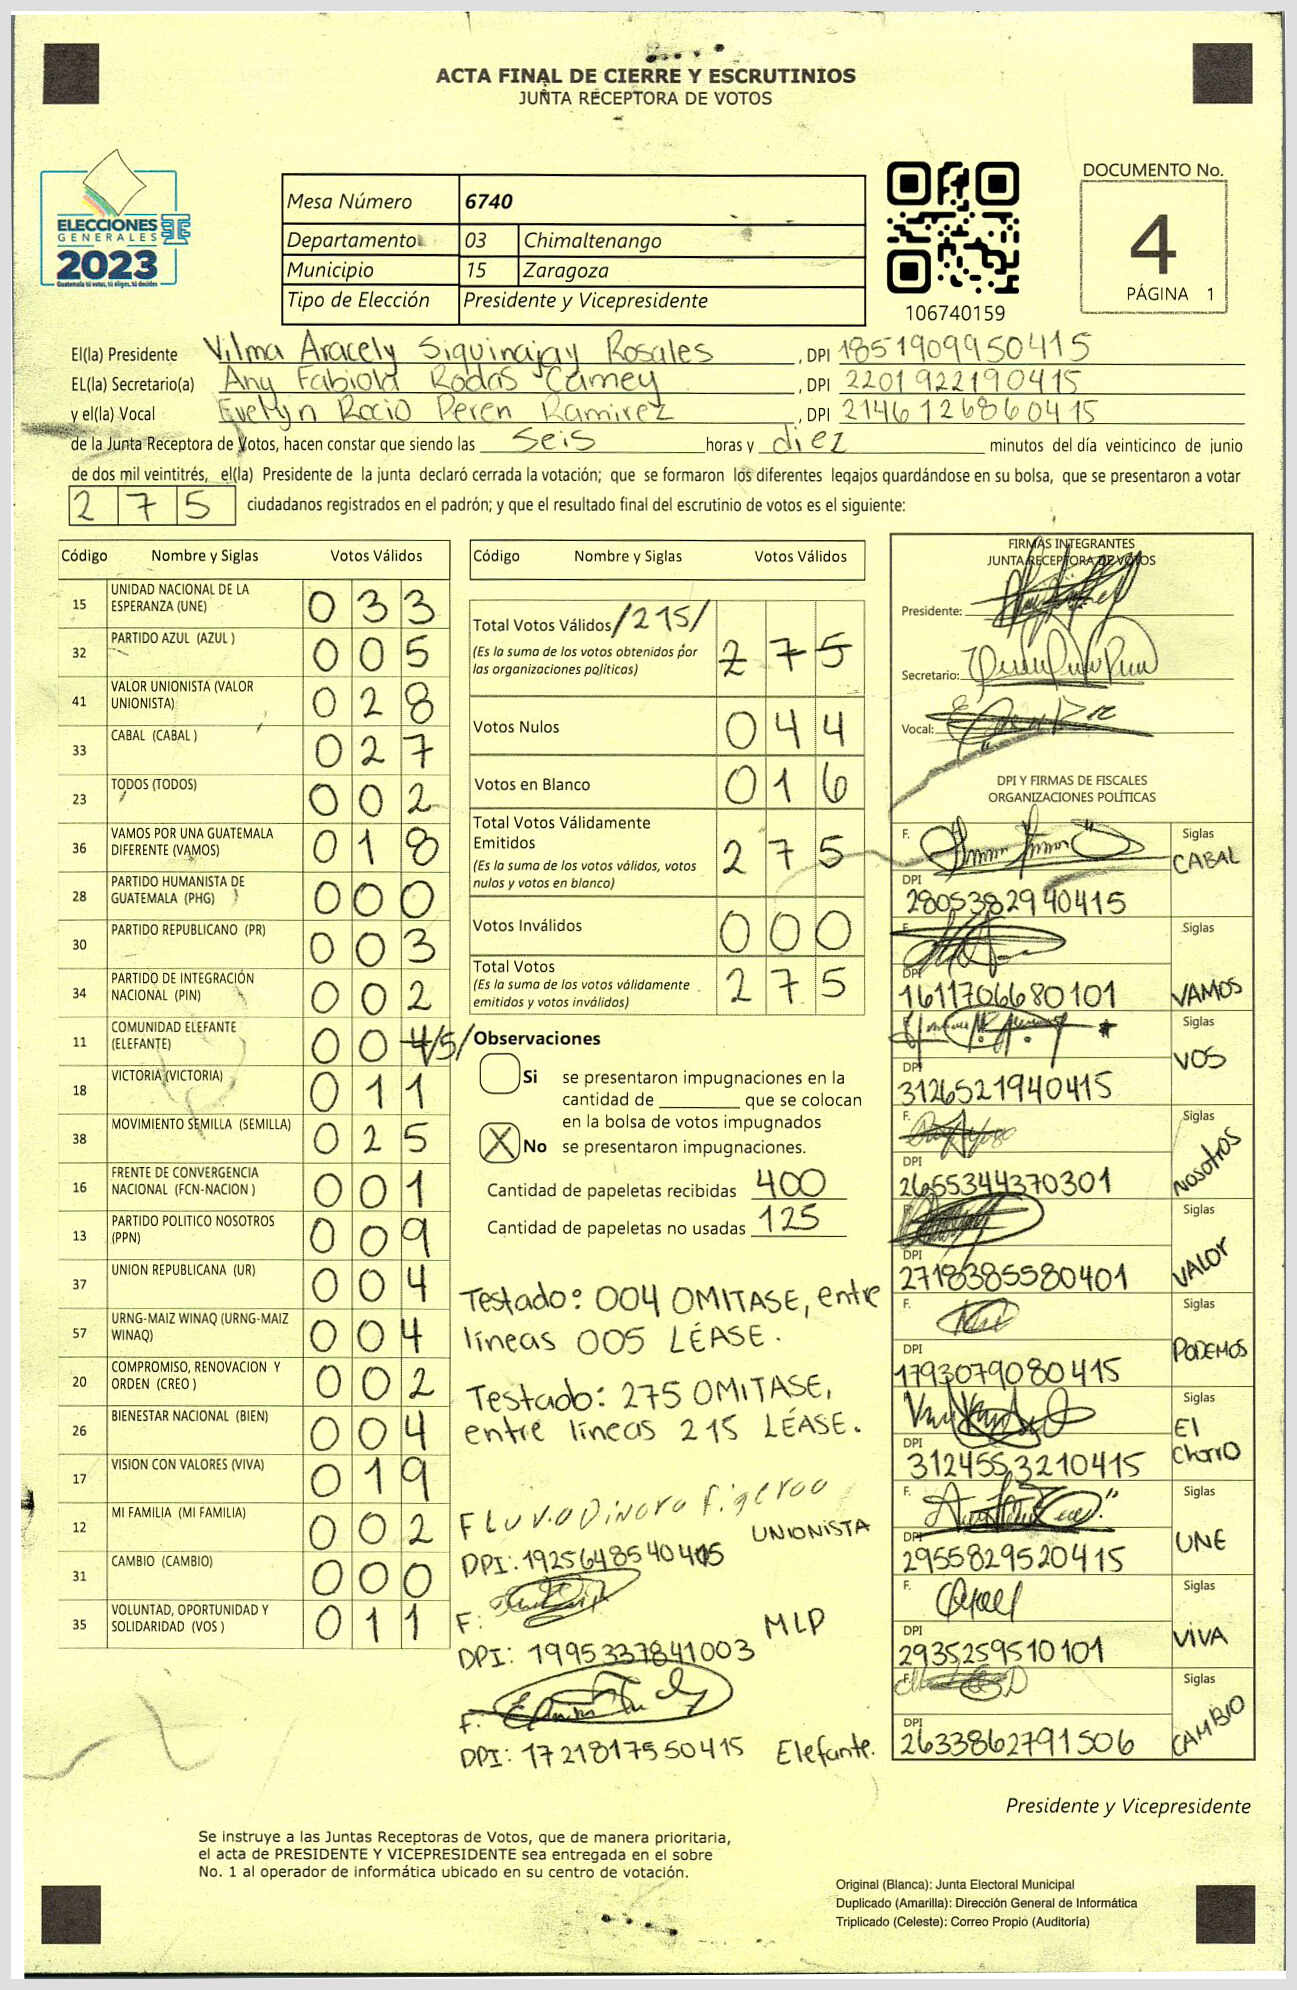 ACTA FINAL DE CIERRE Y ESCRUTINIOS
JUNTA RECEPTORA DE VOTOS
ELECCIONES
GENERALES
2023
Guatemala tú votas, tú eliges, tú decides
Mesa Número 6740
Departamento 03 Chimaltenango
Municipio 15 Zaragoza
Tipo de Elección Presidente y Vicepresidente
106740159
DOCUMENTO No.
4
PÁGINA 1
El(la) Presidente Vilma Aracely Siquinajay Rosales , DPI 1851909950415
EL(la) Secretario(a) Any Fabiola Rodas Camey , DPI 2201922190415
y el(la) Vocal Evelyn Rocio Peren Ramirez , DPI 2146126860415
de la Junta Receptora de Votos, hacen constar que siendo las seis horas y diez minutos del día veinticinco de junio
de dos mil veintitrés, el(la) Presidente de la junta declaró cerrada la votación; que se formaron los diferentes legajos guardándose en su bolsa, que se presentaron a votar
275 ciudadanos registrados en el padrón; y que el resultado final del escrutinio de votos es el siguiente:
Código Nombre y Siglas Votos Válidos
15 UNIDAD NACIONAL DE LA ESPERANZA (UNE) 033
32 PARTIDO AZUL (AZUL ) 005
41 VALOR UNIONISTA (VALOR UNIONISTA) 028
33 CABAL (CABAL ) 027
23 TODOS (TODOS) 002
36 VAMOS POR UNA GUATEMALA DIFERENTE (VAMOS) 018
28 PARTIDO HUMANISTA DE GUATEMALA (PHG) 000
30 PARTIDO REPUBLICANO (PR) 003
34 PARTIDO DE INTEGRACIÓN NACIONAL (PIN) 002
11 COMUNIDAD ELEFANTE (ELEFANTE) 004 /5/
18 VICTORIA (VICTORIA) 011
38 MOVIMIENTO SEMILLA (SEMILLA) 025
16 FRENTE DE CONVERGENCIA NACIONAL (FCN-NACION ) 001
13 PARTIDO POLITICO NOSOTROS (PPN) 009
37 UNION REPUBLICANA (UR) 004
57 URNG-MAIZ WINAQ (URNG-MAIZ WINAQ) 004
20 COMPROMISO, RENOVACION Y ORDEN (CREO ) 002
26 BIENESTAR NACIONAL (BIEN) 004
17 VISION CON VALORES (VIVA) 019
12 MI FAMILIA (MI FAMILIA) 002
31 CAMBIO (CAMBIO) 000
35 VOLUNTAD, OPORTUNIDAD Y SOLIDARIDAD (VOS ) 011
Código Nombre y Siglas Votos Válidos
Total Votos Válidos /215/ 275
(Es la suma de los votos obtenidos por
las organizaciones políticas)
Votos Nulos 044
Votos en Blanco 016
Total Votos Válidamente
Emitidos 275
(Es la suma de los votos válidos, votos
nulos y votos en blanco)
Votos Inválidos 000
Total Votos 275
(Es la suma de los votos válidamente
emitidos y votos inválidos)
Observaciones
Si se presentaron impugnaciones en la
cantidad de ________ que se colocan
en la bolsa de votos impugnados
X No se presentaron impugnaciones.
Cantidad de papeletas recibidas 400
Cantidad de papeletas no usadas 125
Testado: 004 OMITASE, entre
líneas 005 LÉASE.
Testado: 275 OMITASE,
entre líneas 215 LÉASE.
UNIONISTA
DPI: 1925648540415
F:
MLP
DPI: 1995337841003
F:
DPI: 1721817550415 Elefante.
FIRMAS INTEGRANTES
JUNTA RECEPTORA DE VOTOS
Presidente:
Secretario:
Vocal:
DPI Y FIRMAS DE FISCALES
ORGANIZACIONES POLÍTICAS
F. Siglas
CABAL
DPI
2805382940415
F. Siglas
DPI
1611706680101 VAMOS
F. Siglas
VOS
DPI
3126521940415
F. Siglas
NOSOTROS
DPI
2655344370301
F. Siglas
VALOR
DPI
2718385580401
F. Siglas
PODEMOS
DPI
1793079080415
F. Siglas
El Chorro
DPI
3124553210415
F. Siglas
UNE
DPI
2955829520415
F. Siglas
VIVA
DPI
2935259510101
F. Siglas
CAMBIO
DPI
2633862791506
Presidente y Vicepresidente
Se instruye a las Juntas Receptoras de Votos, que de manera prioritaria,
el acta de PRESIDENTE Y VICEPRESIDENTE sea entregada en el sobre
No. 1 al operador de informática ubicado en su centro de votación.
Original (Blanca): Junta Electoral Municipal
Duplicado (Amarilla): Dirección General de Informática
Triplicado (Celeste): Correo Propio (Auditoría)